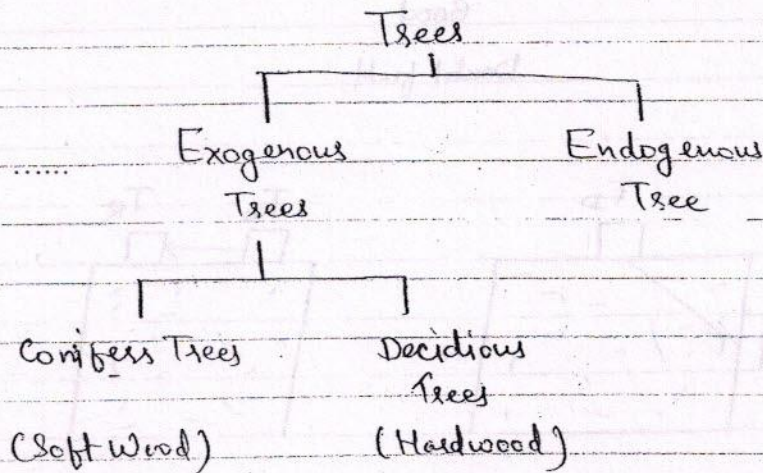 Trees
Exogenous Endogenous
...... Trees Tree
Conifers Trees Decidious
Trees
(Soft Wood) (Hardwood)